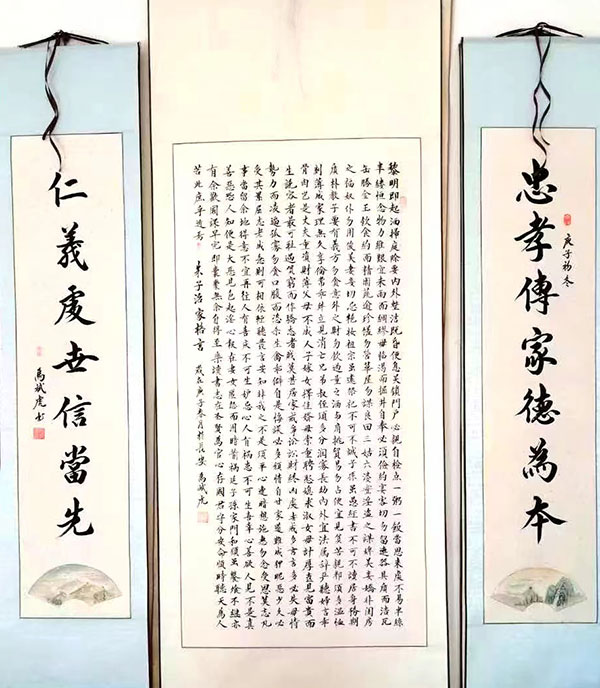 忠孝傳家德為本
庚子初冬
黎明即起洒掃庭除要内外整洁既昏便息关鎖門户必親自檢点一粥一飯當思来處不易半絲
半縷恒念物力維艱宜未雨而綢繆毋臨渴而掘井自奉必須儉約宴客切勿留連器具质而洁瓦
缶勝金玉飲食約而精園蔬愈珍饈勿營華屋勿謀良田三姑六婆實淫盗之媒婢美妾嬌非閨房
之福奴仆勿用俊美妻妾切忌艷妝祖宗虽遠祭祀不可不誠子孫虽愚經書不可不讀居身務期
质朴教子要有義方勿貪意外之財勿飲過量之酒与肩挑貿易勿占便宜見貧苦親鄰須多温恤
刻薄成家理無久享倫常乖舛立見消亡兄弟叔侄須多分润寡長幼内外宜法属辞严聽婦言乖
骨肉岂是丈夫重資財薄父母不成人子嫁女擇佳婿毋索重聘娶媳求淑女毋計厚奩見富貴而
生諂容者最可耻遇貧窮而作驕态者賤莫甚居家戒争訟訟則終凶處世戒多言言多必失毋恃
勢力而凌逼孤寡勿貪口腹而恣杀生禽乖僻自是悔誤必多頹惰自甘家道難成狎昵恶少久必
受其累屈志老成急則可相依輕聽發言安知非我之不是須平心暗想施惠勿念受恩莫忘凡
事當留余地得意不宜再往人有喜慶不可生妒忌心人有祸患不可生喜幸心善欲人見不是真
善恶恐人知便是大恶見色起淫心報在妻女匿怨而用暗箭祸延子孫家門和順虽饔飧不继亦
有余歡國課早完即囊橐無余自得至樂讀書志在圣賢為官心存君國守分安命順時聽天為人
若此庶乎近焉 朱子治家格言 歲在庚子春月於長安 馬斌虎
仁義處世信當先
馬斌虎书